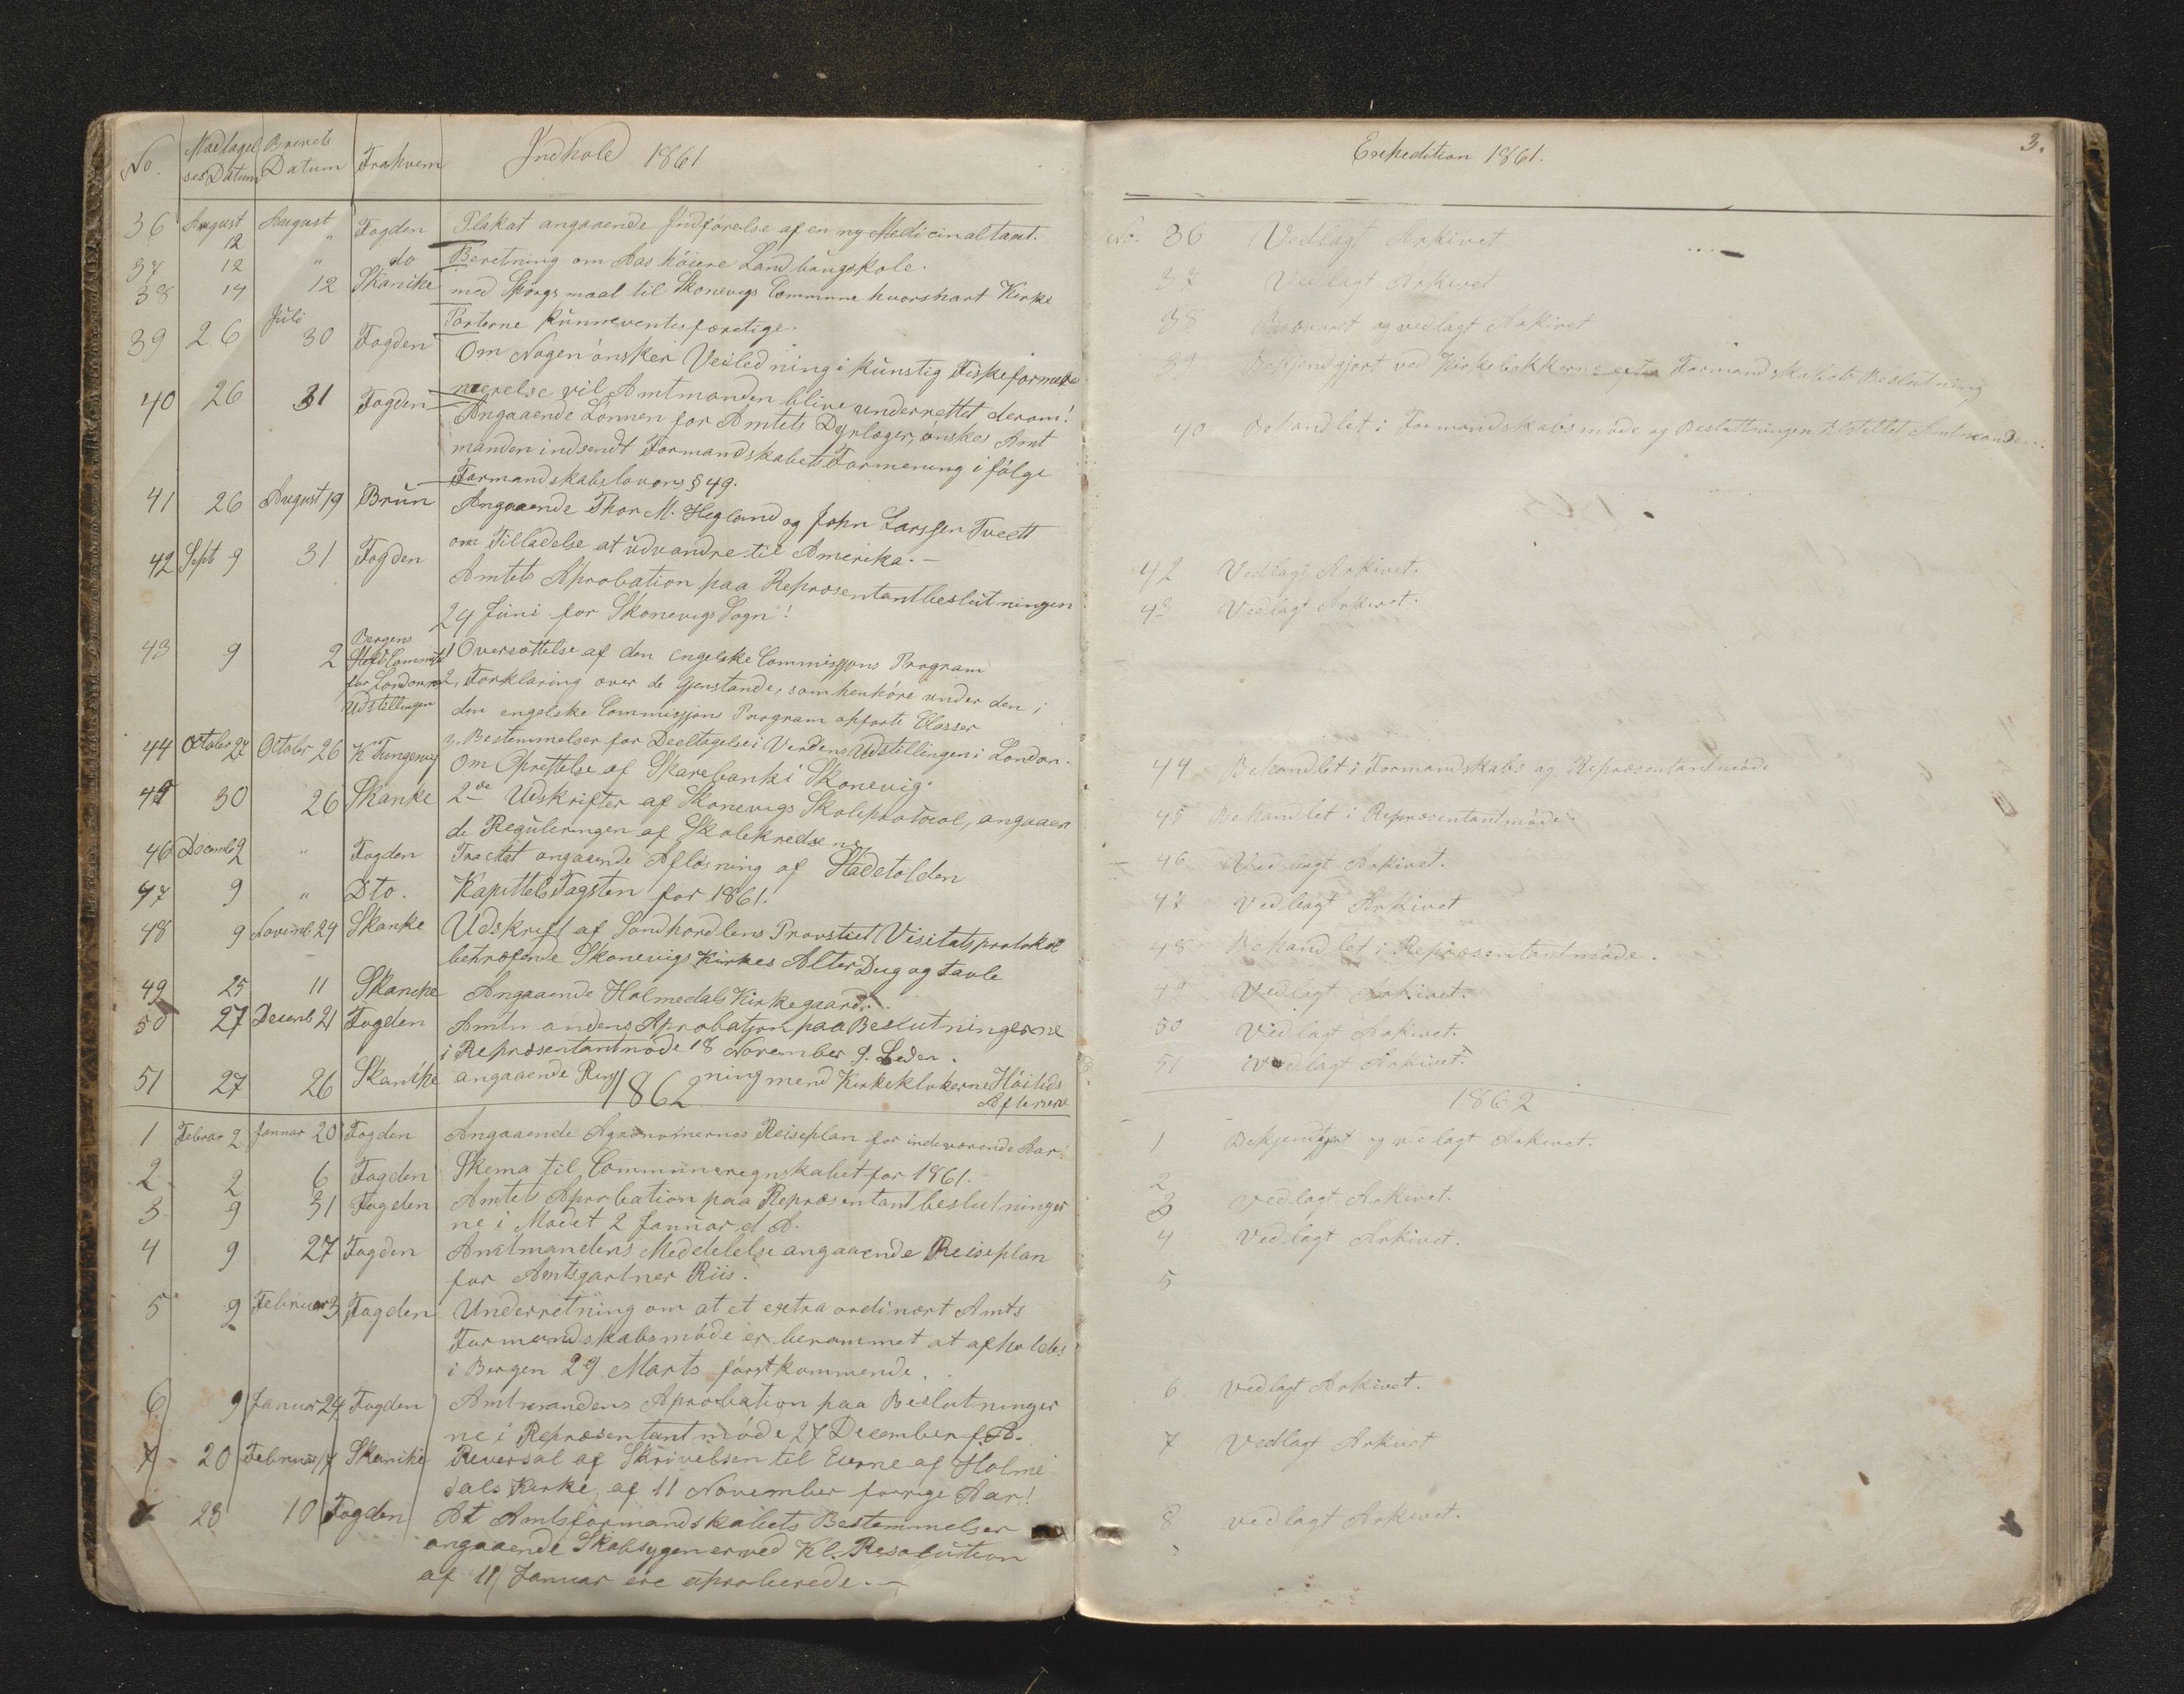 No. Modtagelsesdatum Brevets Datum Frahvem Indhold 1861
36 August 12 August " Fogden Plakat angaaende Indførelse af en ny Medicinaltaxt.
37 12 " do Beretning om Aas høiere Landbrugskole.
38 14 12 Skancke med Spørgsmaal til Skonevigs Commune hvorsnart Kirke
Porterne kunne ventes færdige.
39 26 Juli 30 Fogden Om Nogen ønsker Veiledning i kunstig Fiskeforme
rerelse vil Amtmanden blive underrettet derom!
40 26 31 Fogden Angaaende Lønnen for Amtets Dyrlæger, ønskes Amt
manden indsendt Formandskabets Formening i følge
Formandskabslovens § 49.
41 26 August 19 Brun Angaaende Thor M. Hegland og John Larssen Tvedt
om Tilladelse at udvandre til Amerika.—
42 Septb 9 31 Fogden Amtets Aprobation paa Repræsentantbeslutningen
24 Juni for Skonevigs Sogn!
43 9 2 Bergens Commite for London Udstillingen 1 Oversættelse af den engelske Commissjons Program
2, Forklaring over de Gjenstande, som henhøre under den i
den engelske Commissjons Program opførte Classer
3. Bestemmelser for Deeltagelse i Verdens Udstillingen i London.
44 October 27 October 26 K. Tungesvig Om Oprettelse af Sparebank i Skonevig.
45 30 26 Skanke 2de Udskrifter af Skonevigs Skoleprotocol, angaaen
de Reguleringen af Skolekredsene
46 Decemb 2 " Fogden Tractat angaaende Afløsning af Stadetolden
47 9 " Dto. Kapittels Tagsten for 1861.
48 9 Novemb 24 Skanke Udskrift af Søndhordlens Provstiet Visitatsprotokol
betræfende Skonevigs Kirkes Alter Dug og tavle
49 25 11 Skancke Angaaende Holmedals Kirkegaard.
50 27 Decemb 21 Fogden Amtmandens Aprobatjon paa Beslutningerne
i Repræsentantmøde 18 November
51 27 26 Skancke angaaende Ringning med Kirkeklokerne Høitids
Aftener
1862
1 Februar 2 Januar 20 Fogden Angaaende Agronomernes Reiseplan for indeværende Aar!
2 2 6 Fogden Skema til Communeregnskabet for 1861.
3 9 31 Fogden Amtets Aprobation paa Repræsentantbeslutninger
ne i Mødet 2 Januar d. A.
4 9 27 Fogden Amtmandens Meddelelse angaaende Reiseplan
for Amtsgartner Riis.
5 9 Februar 3 Fogden Underretning om at et extra ordinært Amts
Formandskabsmøde er berammet at afholdes
i Bergen 29 Marts førstkommende.
6 9 Januar 24 Fogden Amtmandens Aprobation paa Beslutninger
ne i Repræsentantmøde 27 December f. A.
7 20 Februar 17 Skancke Reversal af Skrivelsen til Eierne af Holme
dals Kirke, af 11 November forrige Aar!
8 23 10 Fogden At Amtsformandskabets Bestemmelser
angaaende Skabsygen er ved Kl. Resolution
af 11 Januar ere aproberede.—
Expedition 1861. 3.
No. 36 Vedlagt Arkivet
37 Vedlagt Arkivet
38 Besvaret og vedlagt Arkivet
39 Bekjendgjort ved Kirkebakkerne efter Formandskabets Beslutning
40 Behandlet i Formandskabsmøde og Beslutningen tilstillet Amtmanden.
42 Vedlagt Arkivet.
43 Vedlagt Arkivet.
44 Behandlet i Formandskabs og Repræsentantmøde
45 Behandlet i Repræsentantmøde
46 Vedlagt Arkivet.
47 Vedlagt Arkivet
48 Behandlet i Repræsentantmøde.
49 Vedlagt Arkivet.
50 Vedlagt Arkivet.
51 Vedlagt Arkivet.
1862
1 Bekjendtgjort og vedlagt Arkivet.
2
3 Vedlagt Arkivet.
4 Vedlagt Arkivet.
5
6 Vedlagt Arkivet.
7 Vedlagt Arkivet
8 vedlagt Arkivet.